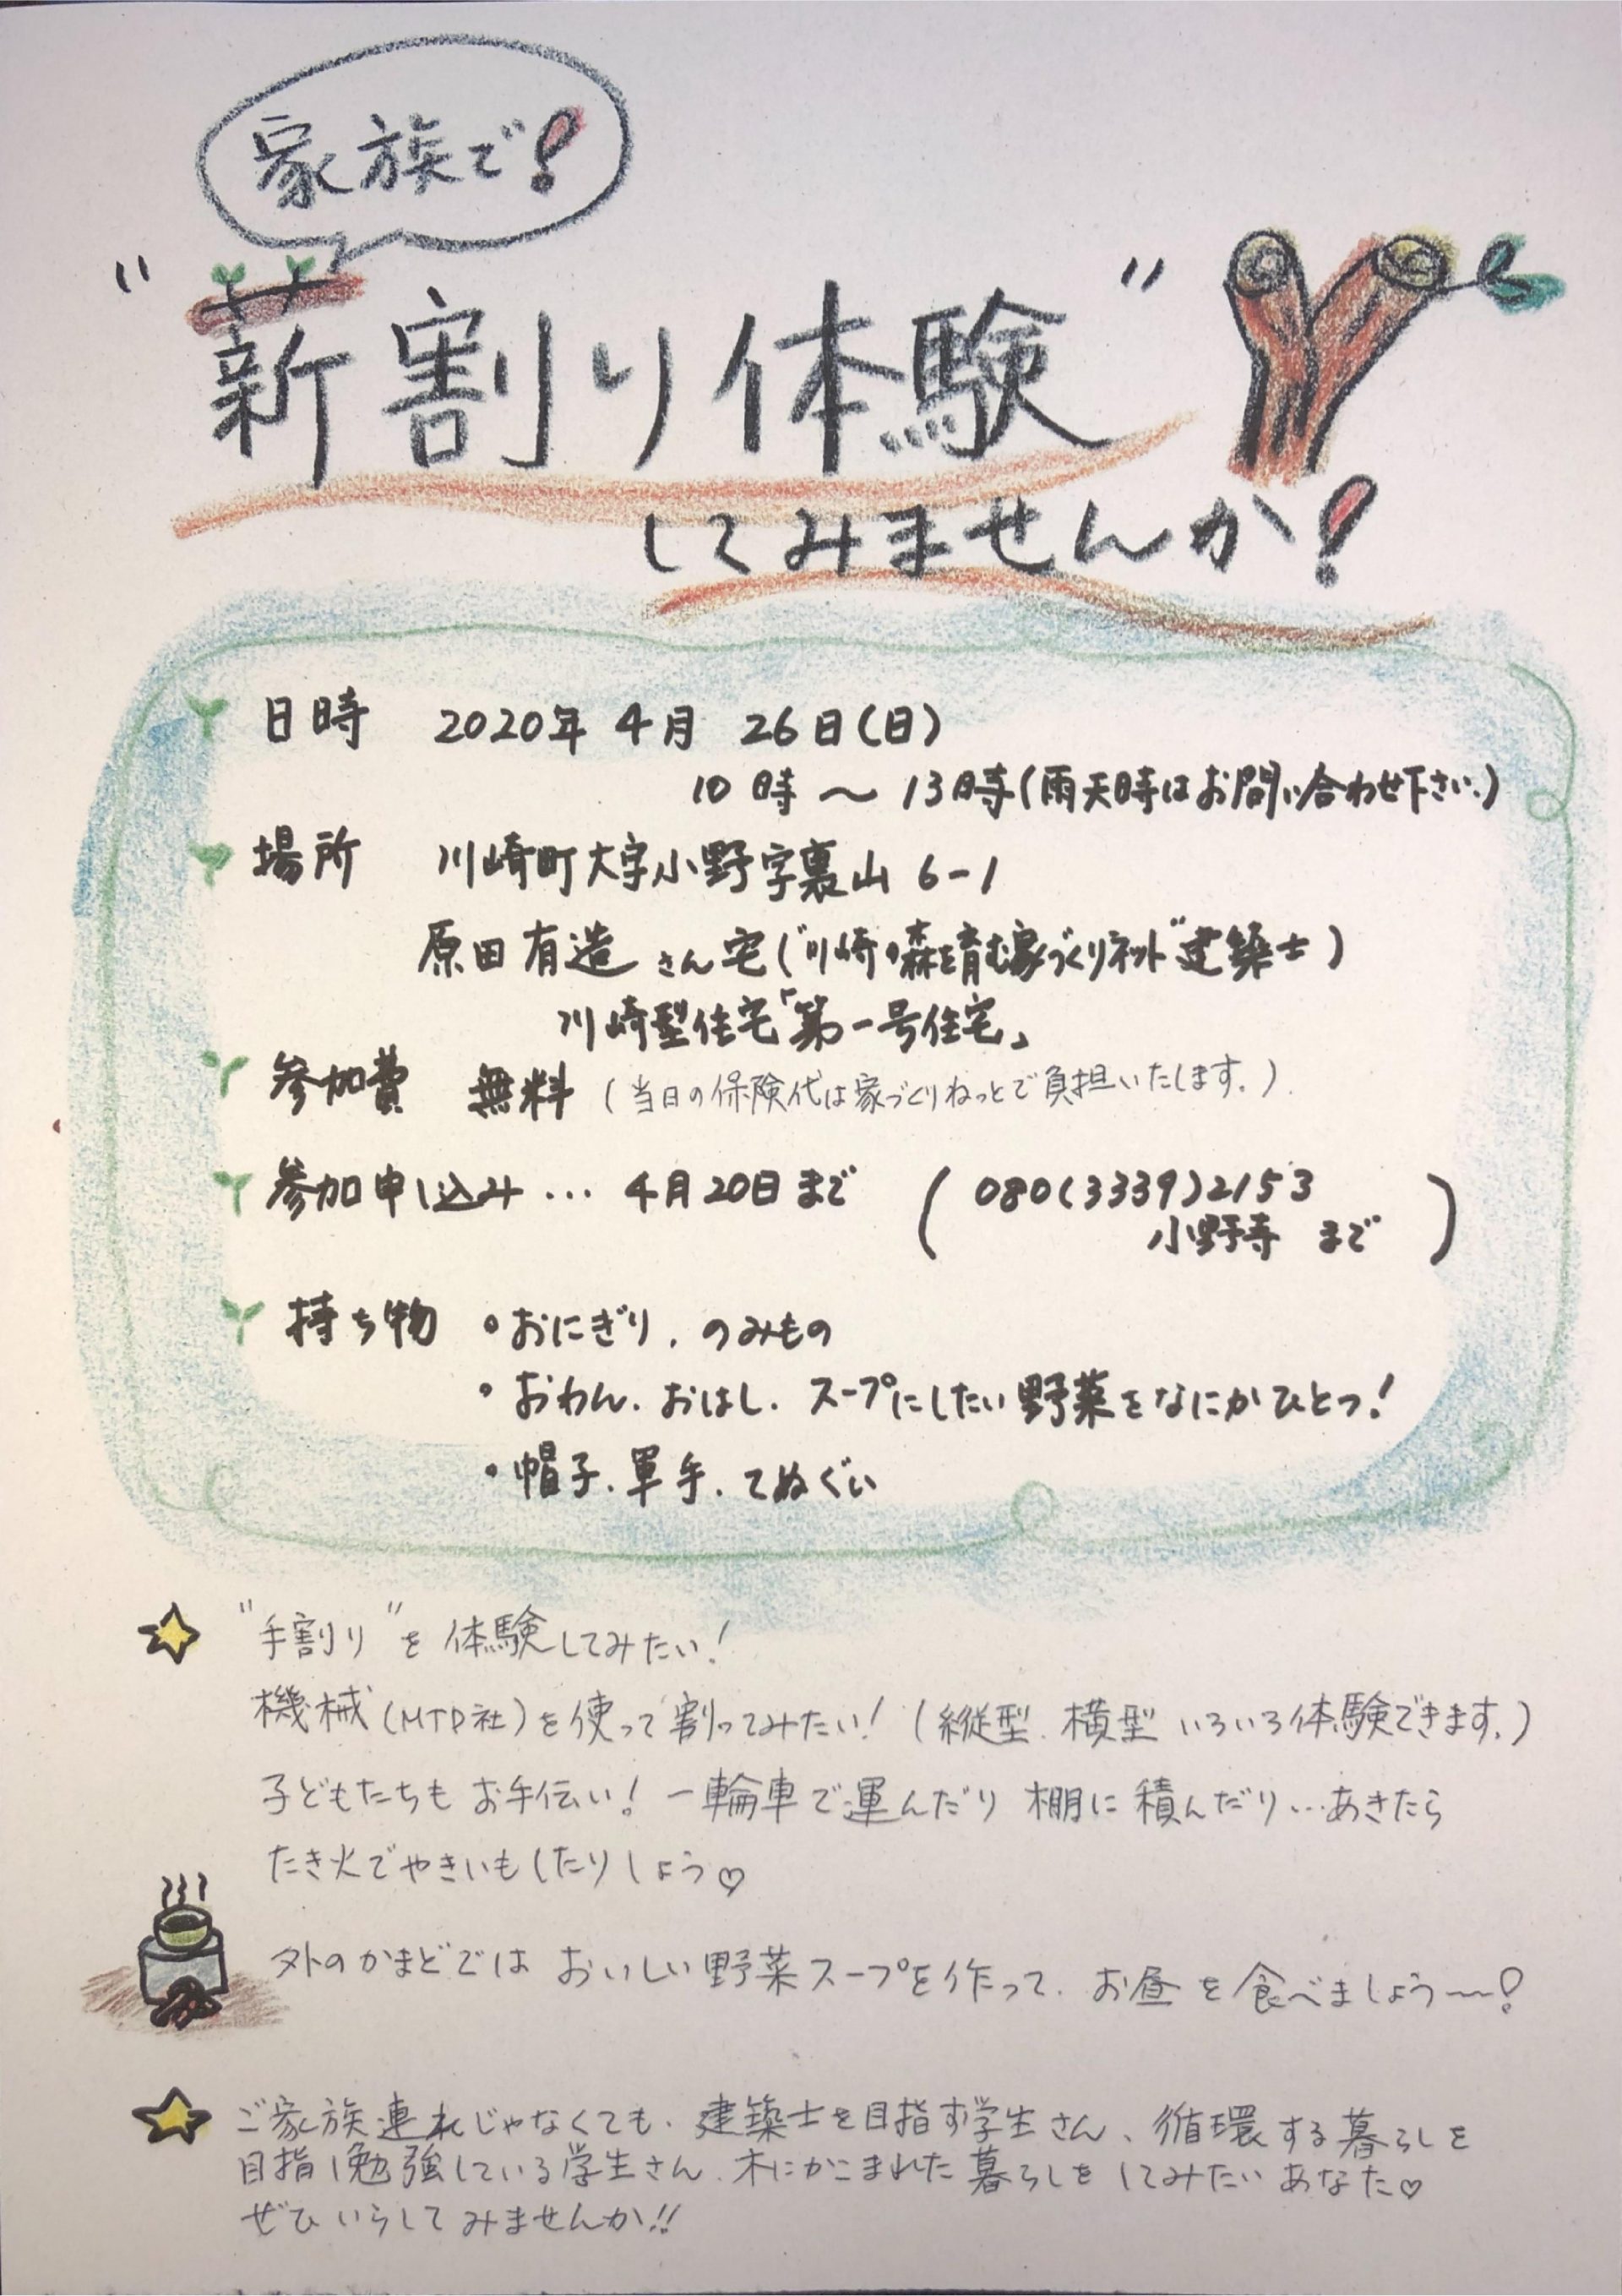 家族で!
"薪割り体験"
してみませんか!
日時 2020年 4月 26日(日)
10時〜13時(雨天時はお問い合わせ下さい。)
場所 川崎町大字小野字裏山 6-1
原田有造さん宅("川崎・森を育む家づくりネット"建築士)
川崎型住宅「第一号住宅」
参加費 無料(当日の保険代は家づくりねっとで負担いたします。)
参加申し込み… 4月20日まで (080(3339)2153
小野寺 まで)
持ち物 ・おにぎり、のみもの
・おわん、おはし、スープにしたい野菜をなにかひとつ!
・帽子、軍手、てぬぐい
"手割り"を体験してみたい!
機械(MTD社)を使って割ってみたい!(縦型、横型 いろいろ体験できます。)
子どもたちもお手伝い! 一輪車で運んだり 棚に積んだり…あきたら
たき火でやきいもしたりしよう♡
外のかまどでは おいしい野菜スープを作って、お昼を食べましょう〜!
ご家族連れじゃなくても、建築士を目指す学生さん、循環する暮らしを
目指し勉強している学生さん、木にかこまれた暮らしをしてみたいあなた♡
ぜひいらしてみませんか!!